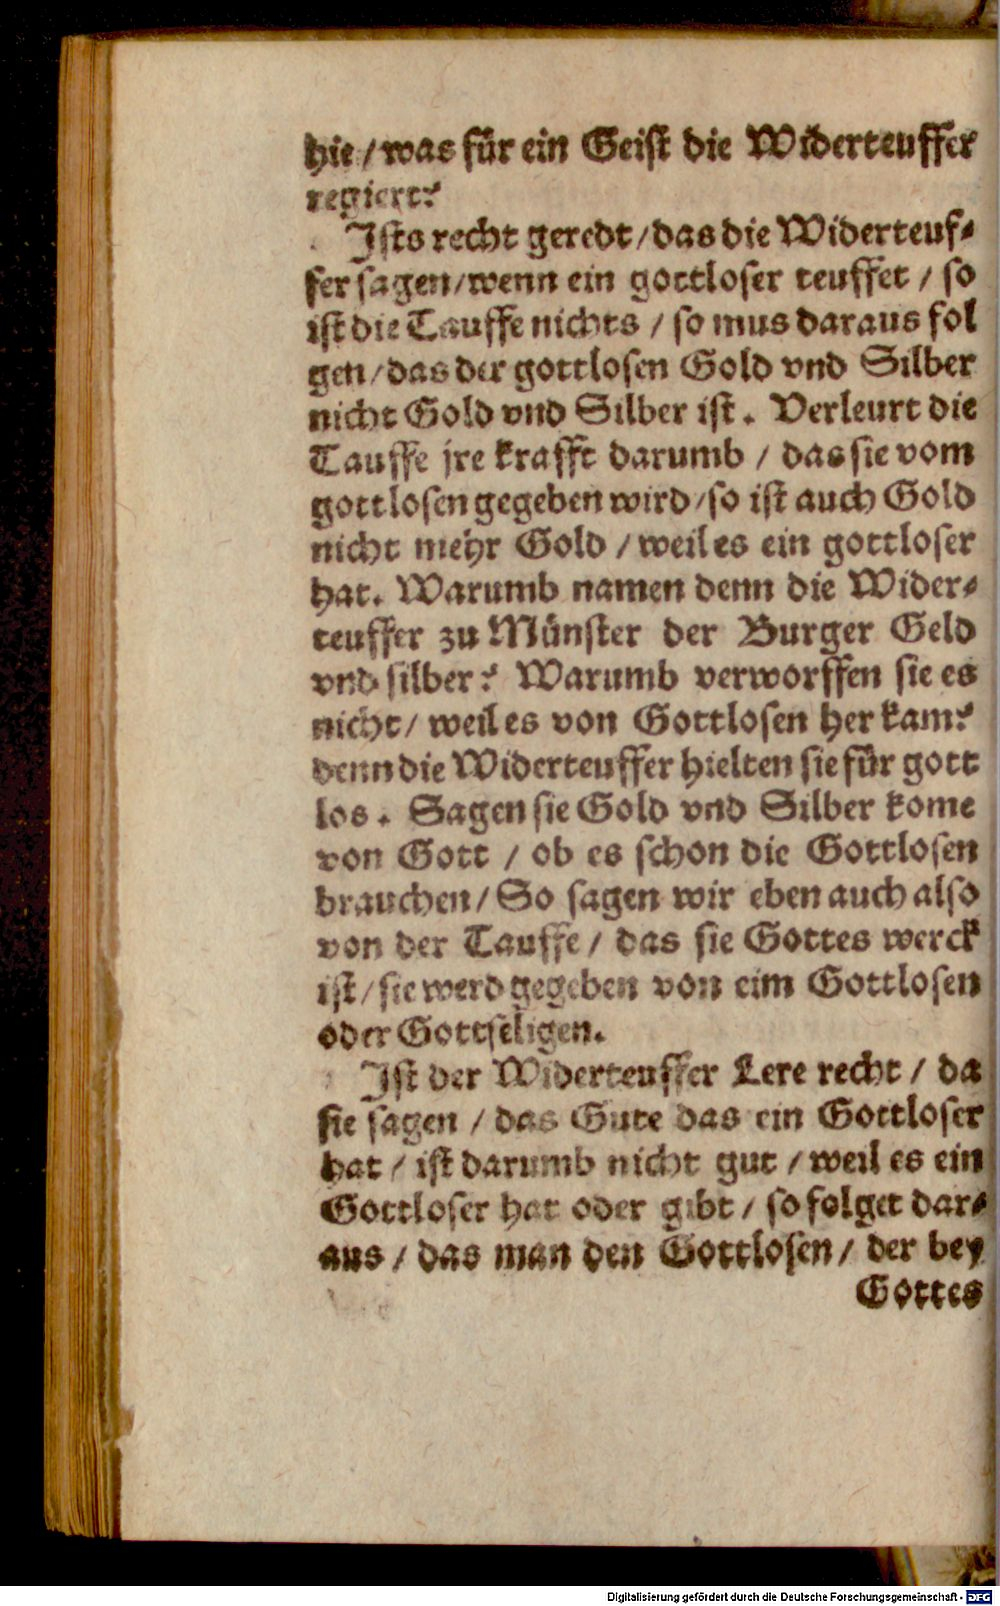 hie / was für ein Geist die Widerteuffer
regiert?
Ists recht geredt / das die Widerteuf-
fer sagen / wenn ein gottloser teuffet / so
ist die Tauffe nichts / so mus daraus fol
gen / das der gottlosen Gold vnd Silber
nicht Gold vnd Silber ist. Verleurt die
Tauffe jre krafft darumb / das sie vom
gottlosen gegeben wird / so ist auch Gold
nicht mehr Gold / weil es ein gottloser
hat. Warumb namen denn die Wider-
teuffer zu Münster der Burger Geld
vnd silber? Warumb verworffen sie es
nicht / weil es von Gottlosen her kam?
denn die Widerteuffer hielten sie für gott
los. Sagen sie Gold vnd Silber kome
von Gott / ob es schon die Gottlosen
brauchen / So sagen wir eben auch also
von der Tauffe / das sie Gottes werck
ist / sie werd gegeben von eim Gottlosen
oder Gottseligen.
Ist der Widerteuffer Lere recht / da
sie sagen / das Gute das ein Gottloser
hat / ist darumb nicht gut / weil es ein
Gottloser hat oder gibt / so folget dar-
aus / das man den Gottlosen / der bey
Gottes
Digitalisierung gefördert durch die Deutsche Forschungsgemeinschaft - DFG